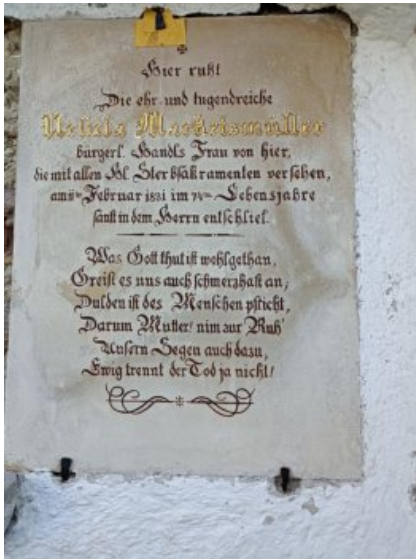 Hier ruht
Die ehr und tugendreiche
bürgerl. Handls Frau von hier,
die mit allen Hl. Sterbsakramenten versehen,
am Februar 1831 im Lebensjahre
sanft in dem Herrn entschlief.
Was Gott thut ist wohlgethan,
Greift es uns auch schmerzhaft an;
Dulden ist des Menschen pflicht,
Darum Mutter! nim zur Ruh'
Unsern Segen auch dazu,
Ewig trennt der Tod ja nicht!